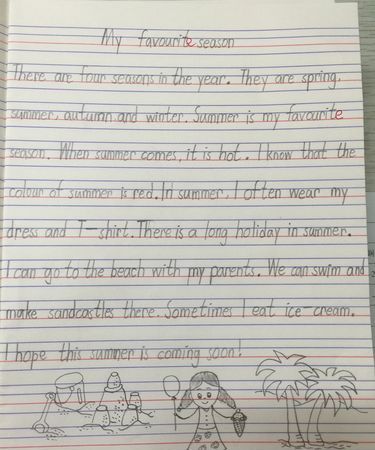 My favourite season
There are four seasons in the year. They are spring,
summer, autumn and winter. Summer is my favourite
season. When summer comes, it is hot. I know that the
colour of summer is red. In summer, I often wear my
dress and T-shirt. There is a long holiday in summer.
I can go to the beach with my parents. We can swim and
make sandcastles there. Sometimes I eat ice-cream.
I hope this summer is coming soon!